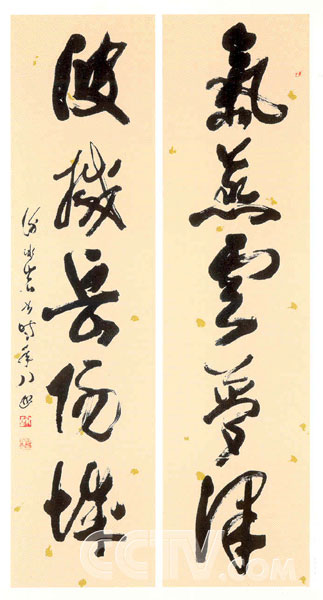 氣蒸雲夢澤
波撼岳陽城
時年八
CCTV.com